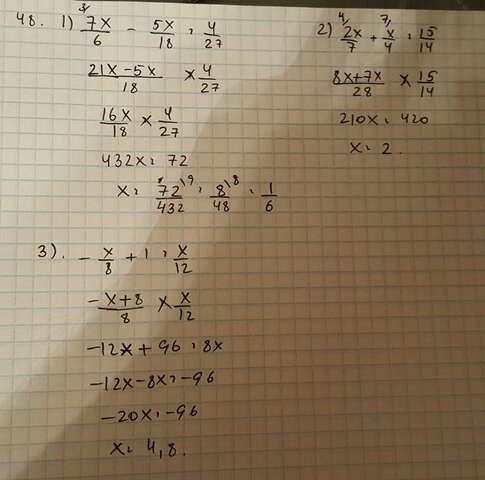 48. 1) 3/ 7x/6 - 5x/18 = 4/27
21x-5x/18 × 4/27
16x/18 × 4/27
432x = 72
x = 72\9/432 = 8\8/48 = 1/6
2) 4/ 2x/7 + 7/ x/4 = 15/14
8x+7x/28 × 15/14
210x = 420
x = 2.
3). - x/8 + 1 = x/12
-x+8/8 × x/12
-12x + 96 = 8x
-12x-8x = -96
-20x = -96
x = 4,8.